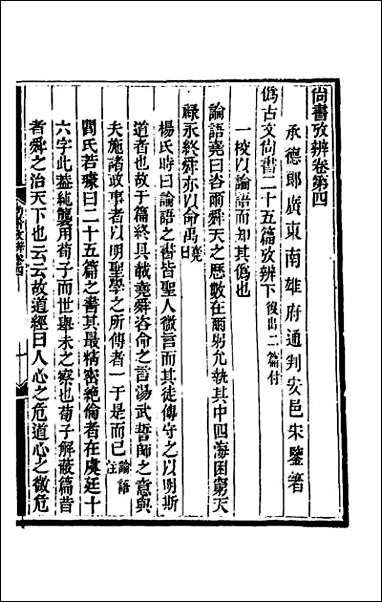 尚書攷辨卷第四
承德郎廣東南雄府通判安邑宋鑒著
僞古文尚書二十五篇攷辨下後出二篇付
一校以論語而知其僞也
論語堯曰咨爾舜天之歷數在爾躬允執其中四海困窮天
祿永終舜亦以命禹堯曰
楊氏時曰論語之書皆聖人微言而其徒傳守之以明斯
道者也故于篇終具載堯舜咨命之言湯武誓師之意與
夫施諸政事者以明聖學之所傳者一于是而已論語注
閻氏若璩曰二十五篇之書其最精密絶倫者在虞廷十
六字此葢純襲用荀子而世舉未之察也荀子解蔽篇昔
者舜之治天下也云云故道經曰人心之危道心之微危
尚書攷辨卷四
一